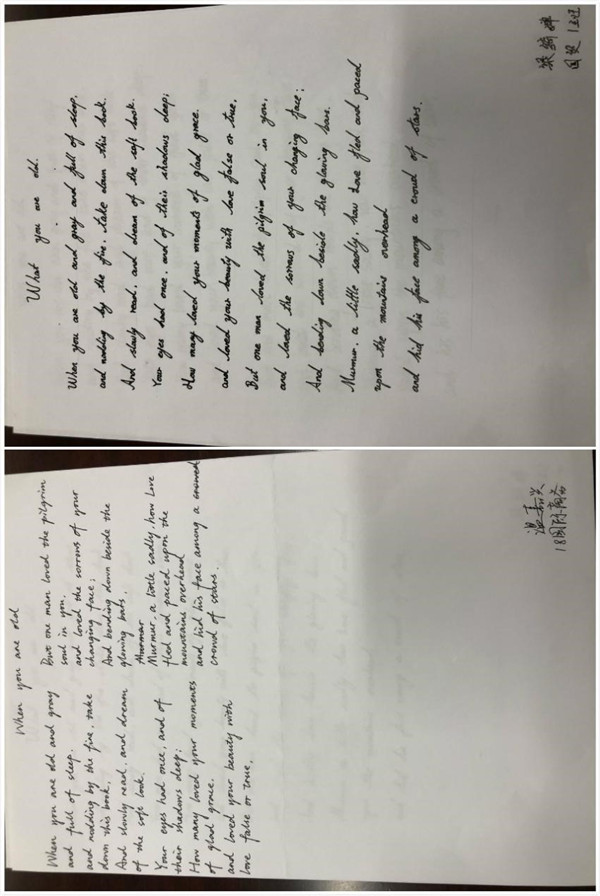 What you are old.
When you are old and gray and full of sleep.
and nodding by the fire, take down this book.
And slowly read, and dream of the soft look.
Your eyes had once, and of their shadows deep;
How many loved your moments of glad grace.
and loved your beauty with love false or true,
But one man loved the pilgrim soul in you,
and loved the sorrows of your changing face;
And bending down beside the glowing bars.
Murmur, a little sadly, how love fled and paced
upon the mountains overhead
and hid his face among a crowd of stars.
国贸1班
When you are old
When you are old and gray
and full of sleep.
and nodding by the fire, take
down this book.
And slowly read, and dream
of the soft look.
Your eyes had once, and of
their shadows deep;
How many loved your moments
of glad grace.
and loved your beauty with
love false or true.
But one man loved the pilgrim
soul in you.
and loved the sorrows of your
changing face;
And bending down beside the
glowing bars.
Murmur, a little sadly, how Love
fled and paced upon the
mountains overhead
and hid his face among a crowd
crowd of stars.
温嘉兴
18国际商务